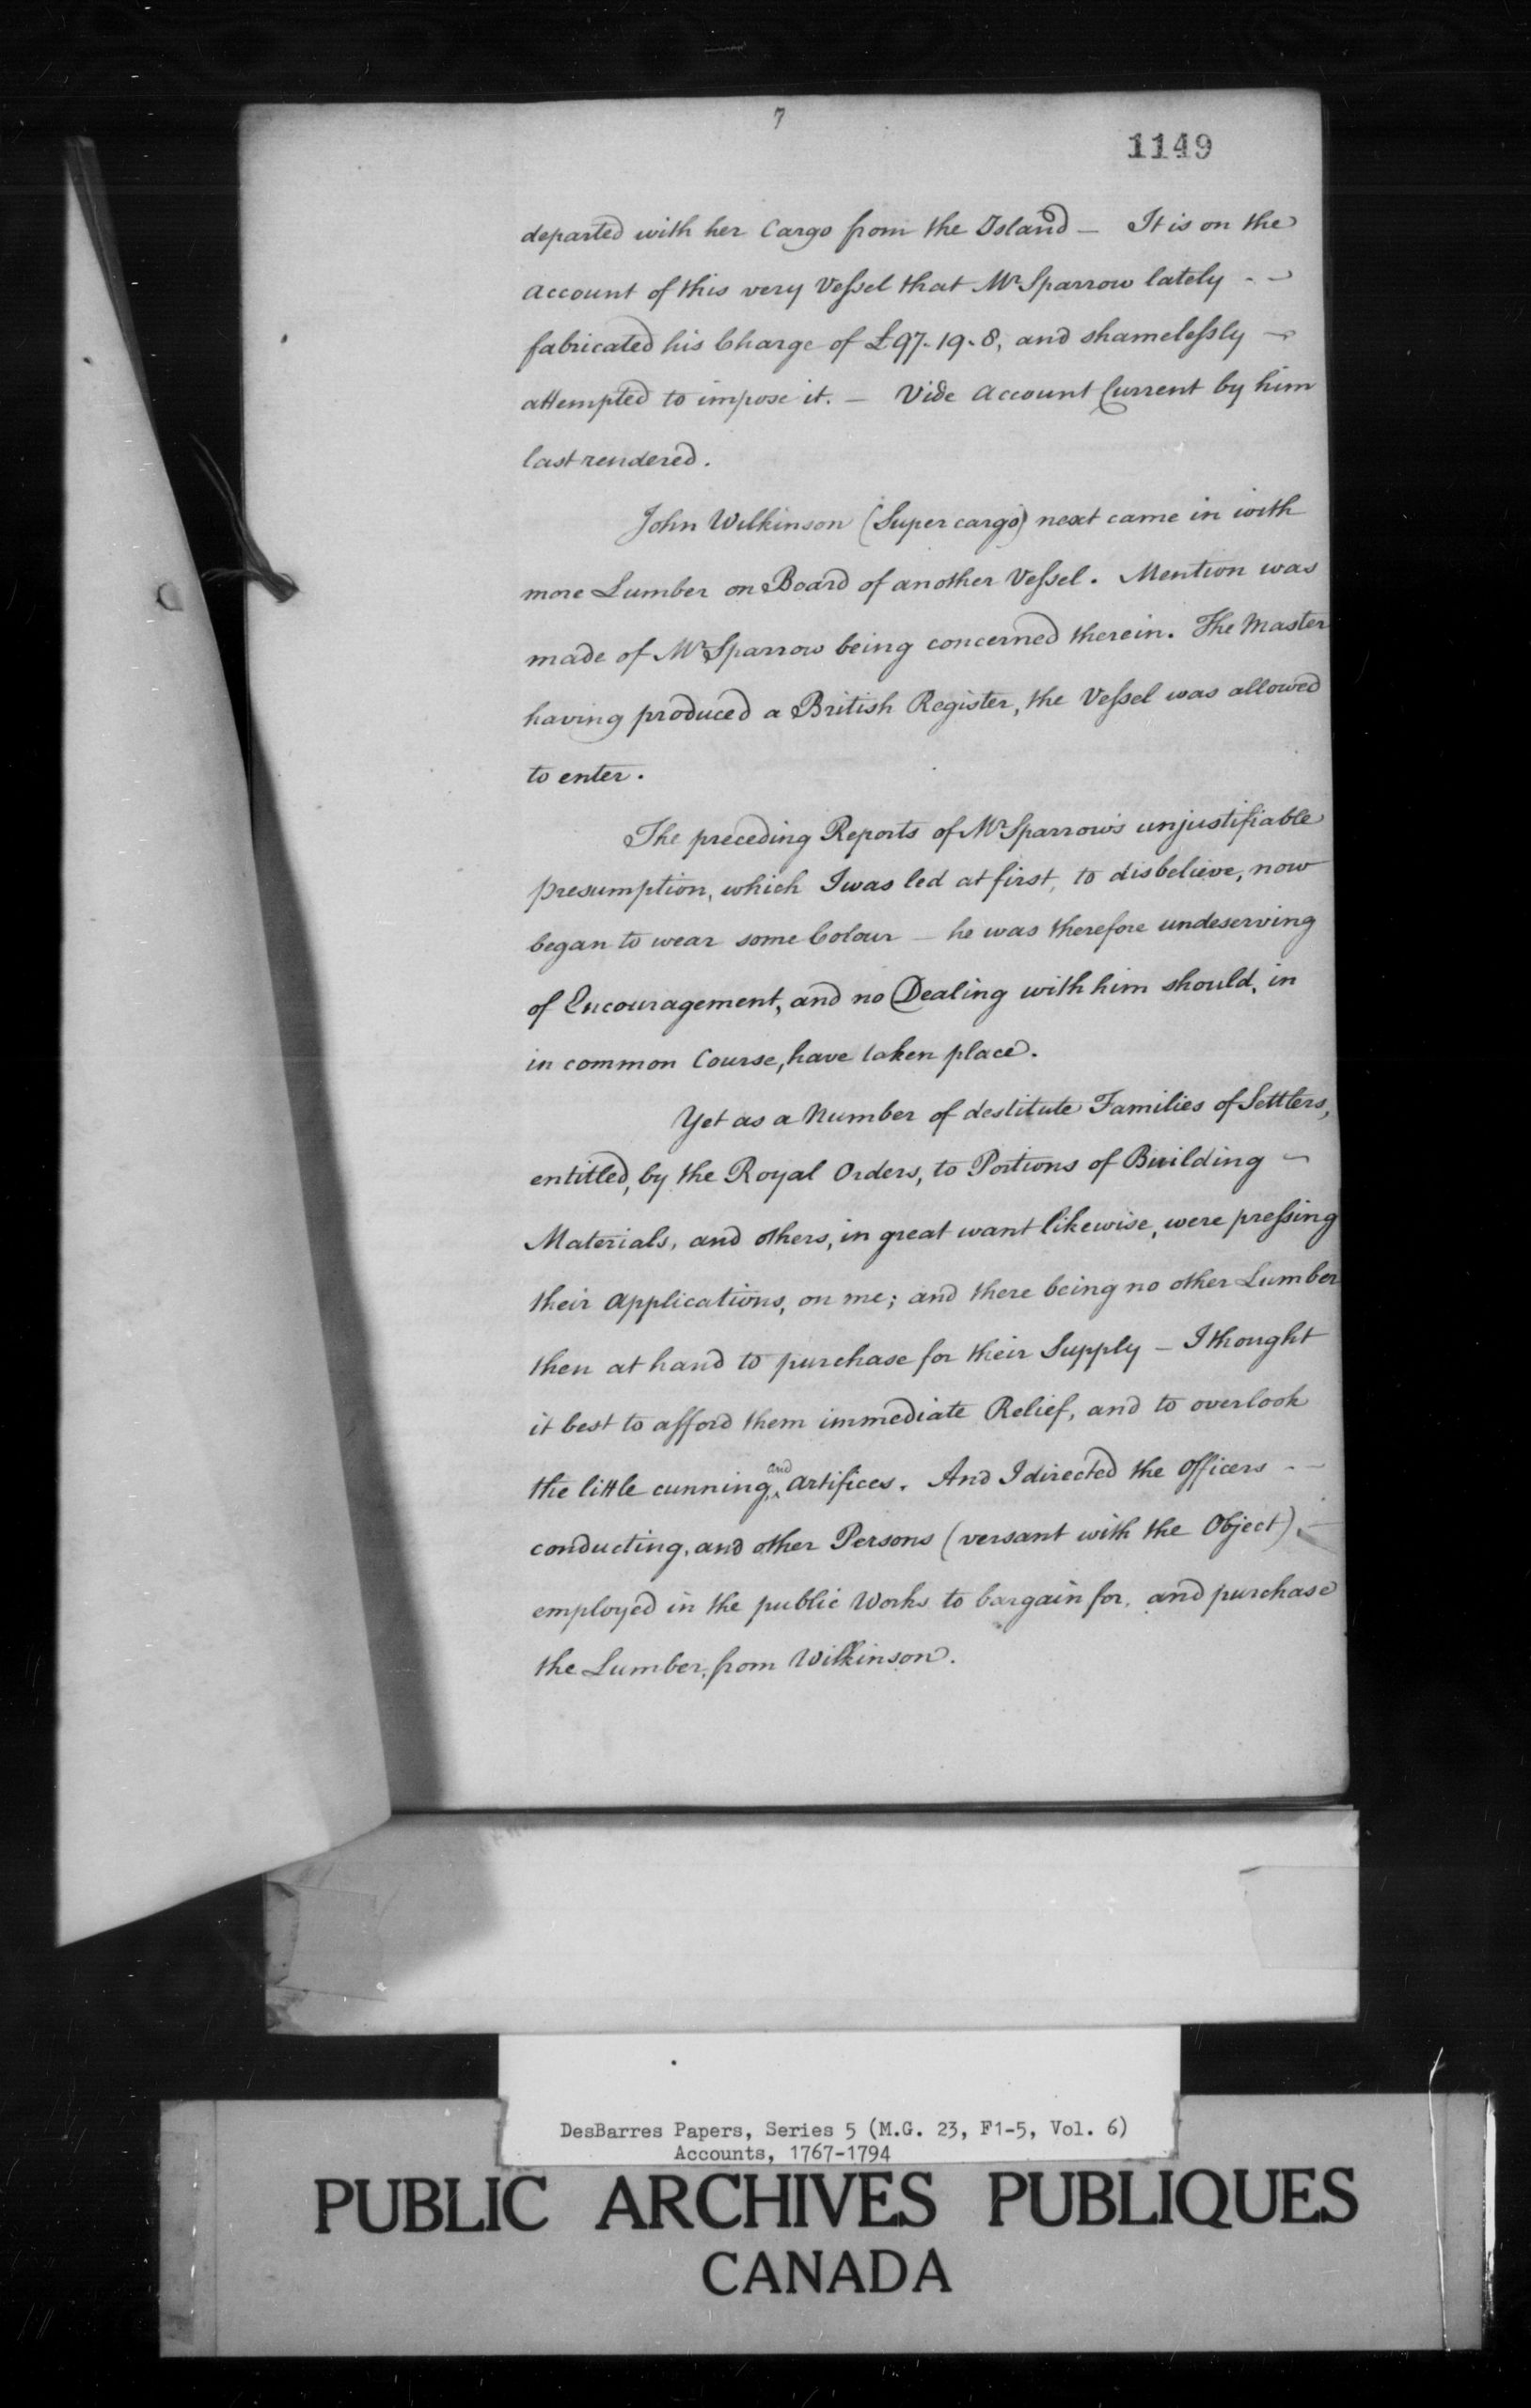 7
1149
departed with her Cargo from the Island — It is on the
account of this very Vessel that Mr Sparrow lately - -
fabricated his Charge of £97.19.8, and shamelessly —
attempted to impose it. — Vide Account Current by him
last rendered.
John Wilkinson (Supercargo) next came in with
more Lumber on Board of another Vessel. Mention was
made of Mr Sparrow being concerned therein. The Master
having produced a British Register, the Vessel was allowed
to enter.
The preceding Reports of Mr Sparrow's unjustifiable
presumption, which I was led at first, to disbelieve, now
began to wear some Colour — he was therefore undeserving
of Encouragement, and no Dealing with him should, in
in common Course, have taken place.
Yet as a Number of destitute Families of Settlers,
entitled, by the Royal Orders, to Portions of Building —
Materials, and others, in great want likewise, were pressing
their applications, on me; and there being no other Lumber
then at hand to purchase for their Supply — I thought
it best to afford them immediate Relief, and to overlook
the little cunning, and artifices. And I directed the Officers - -
conducting, and other Persons (versant with the Object), —
employed in the public Works to bargain for, and purchase
the Lumber, from Wilkinson.
DesBarres Papers, Series 5 (M.G. 23, F1-5, Vol. 6)
Accounts, 1767-1794
PUBLIC ARCHIVES PUBLIQUES
CANADA